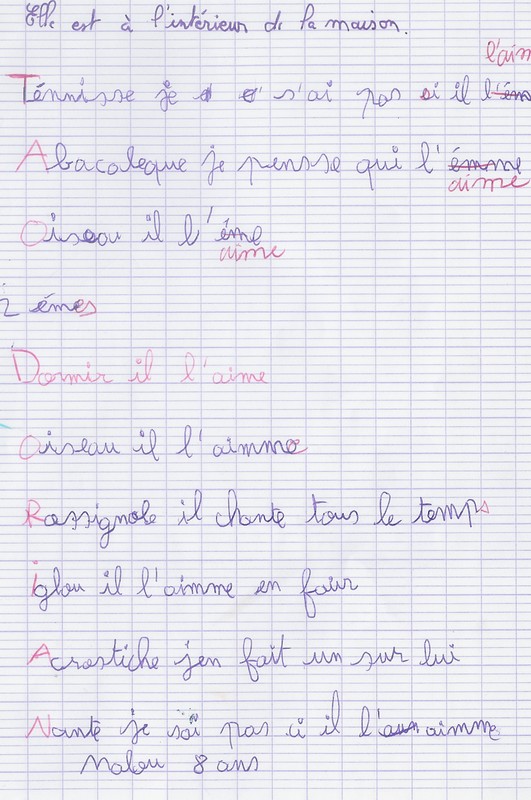 Elle est à l'intérieur de la maison.
l'aim
Ténnisse je s'ai pas si il l'ém
Abacaleque je pensse qui l'émme
aime
Oiseau il l'éme
aime
2 émes
Dormir il l'aime
Oiseau il l'aimme
Rossignole il chante tous le temps
iglou il l'aimme en faur
Acrostiche jen fait un sur lui
Nante je sai pas ci il l'aimme
Malou 8 ans